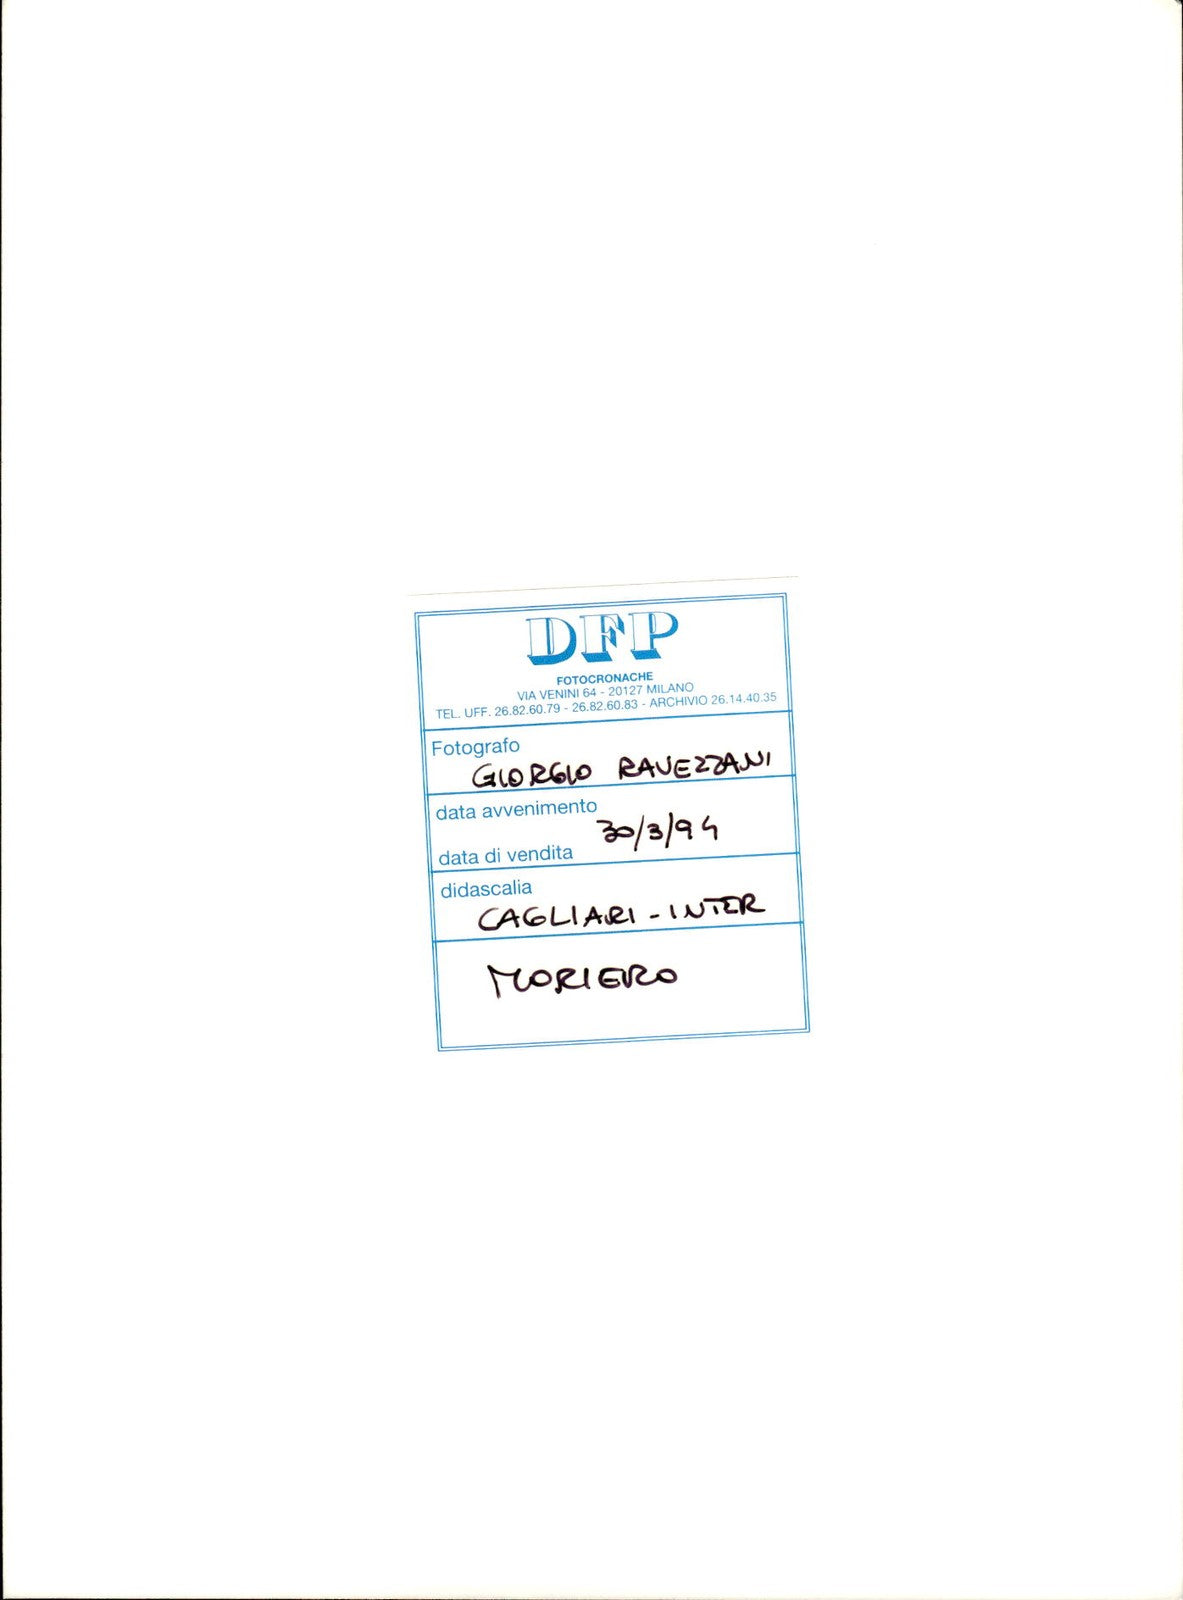 DFP
FOTOCRONACHE
VIA VENINI 64 - 20127 MILANO
TEL. UFF. 26.82.60.79 - 26.82.60.83 - ARCHIVIO 26.14.40.35
Fotografo
GIORGIO RAVEZZANI
data avvenimento
30/3/94
data di vendita
didascalia
CAGLIARI - INTER
MORIERO